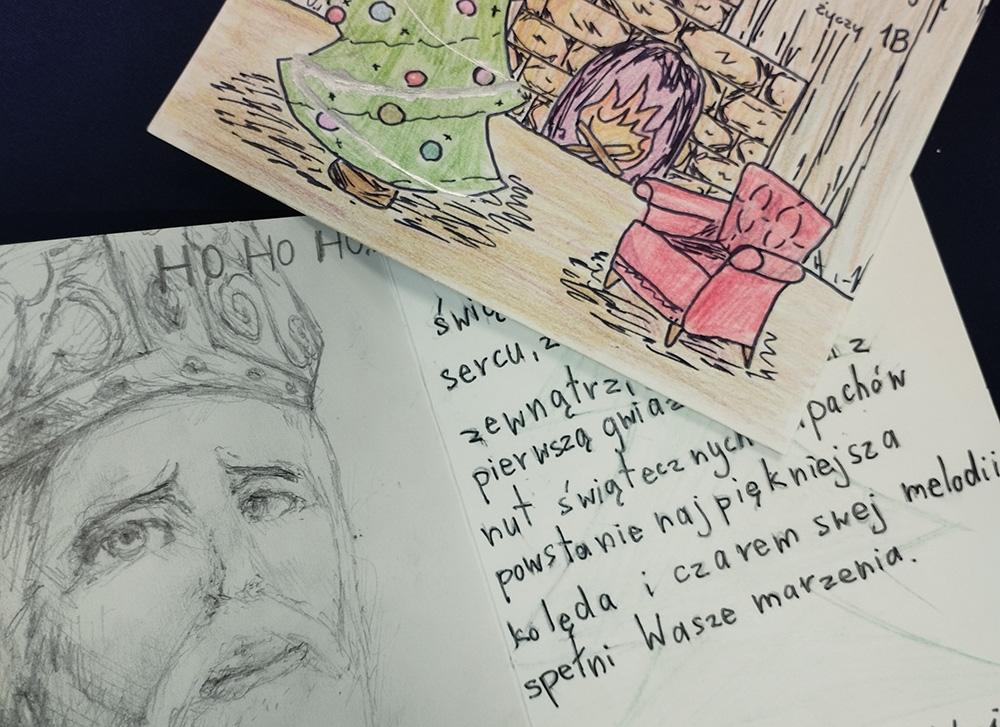 życzy 1B
HO HO HO
sercu, z
zewnątrz
pierwszą
nut świątecznych
powstanie najpiękniejsza
kolęda i czarem swej melodii
spełni Wasze marzenia.